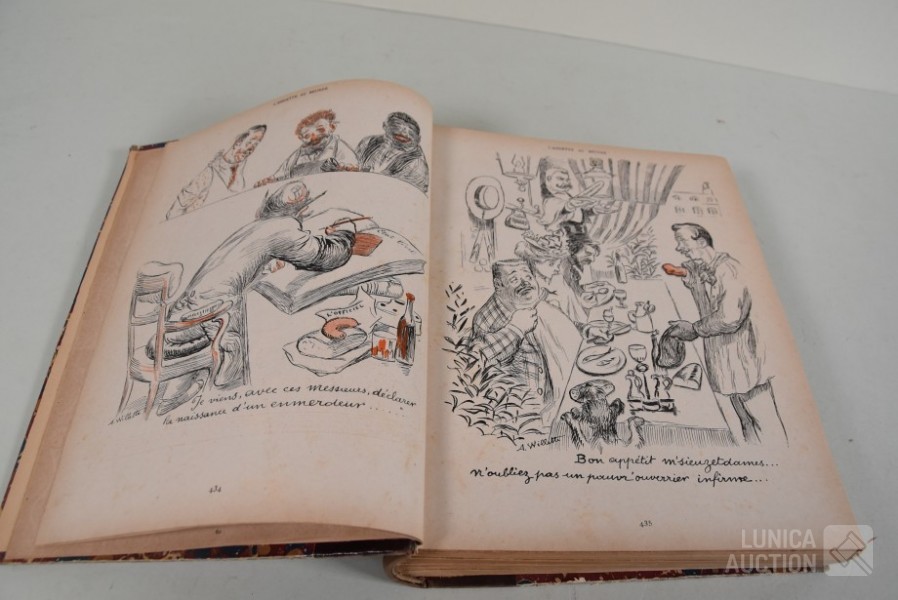 L'ASSIETTE AU BEURRE
L'OFFICIEL
Je viens, avec ces messieurs, déclarer
la naissance d'un enmerdeur.....
A. Willette
434
L'ASSIETTE AU BEURRE
A. Willette
Bon appétit m'sieuzet dames...
n'oubliez pas un pauvr' ouverrier infirme...
435
LUNICA
AUCTION